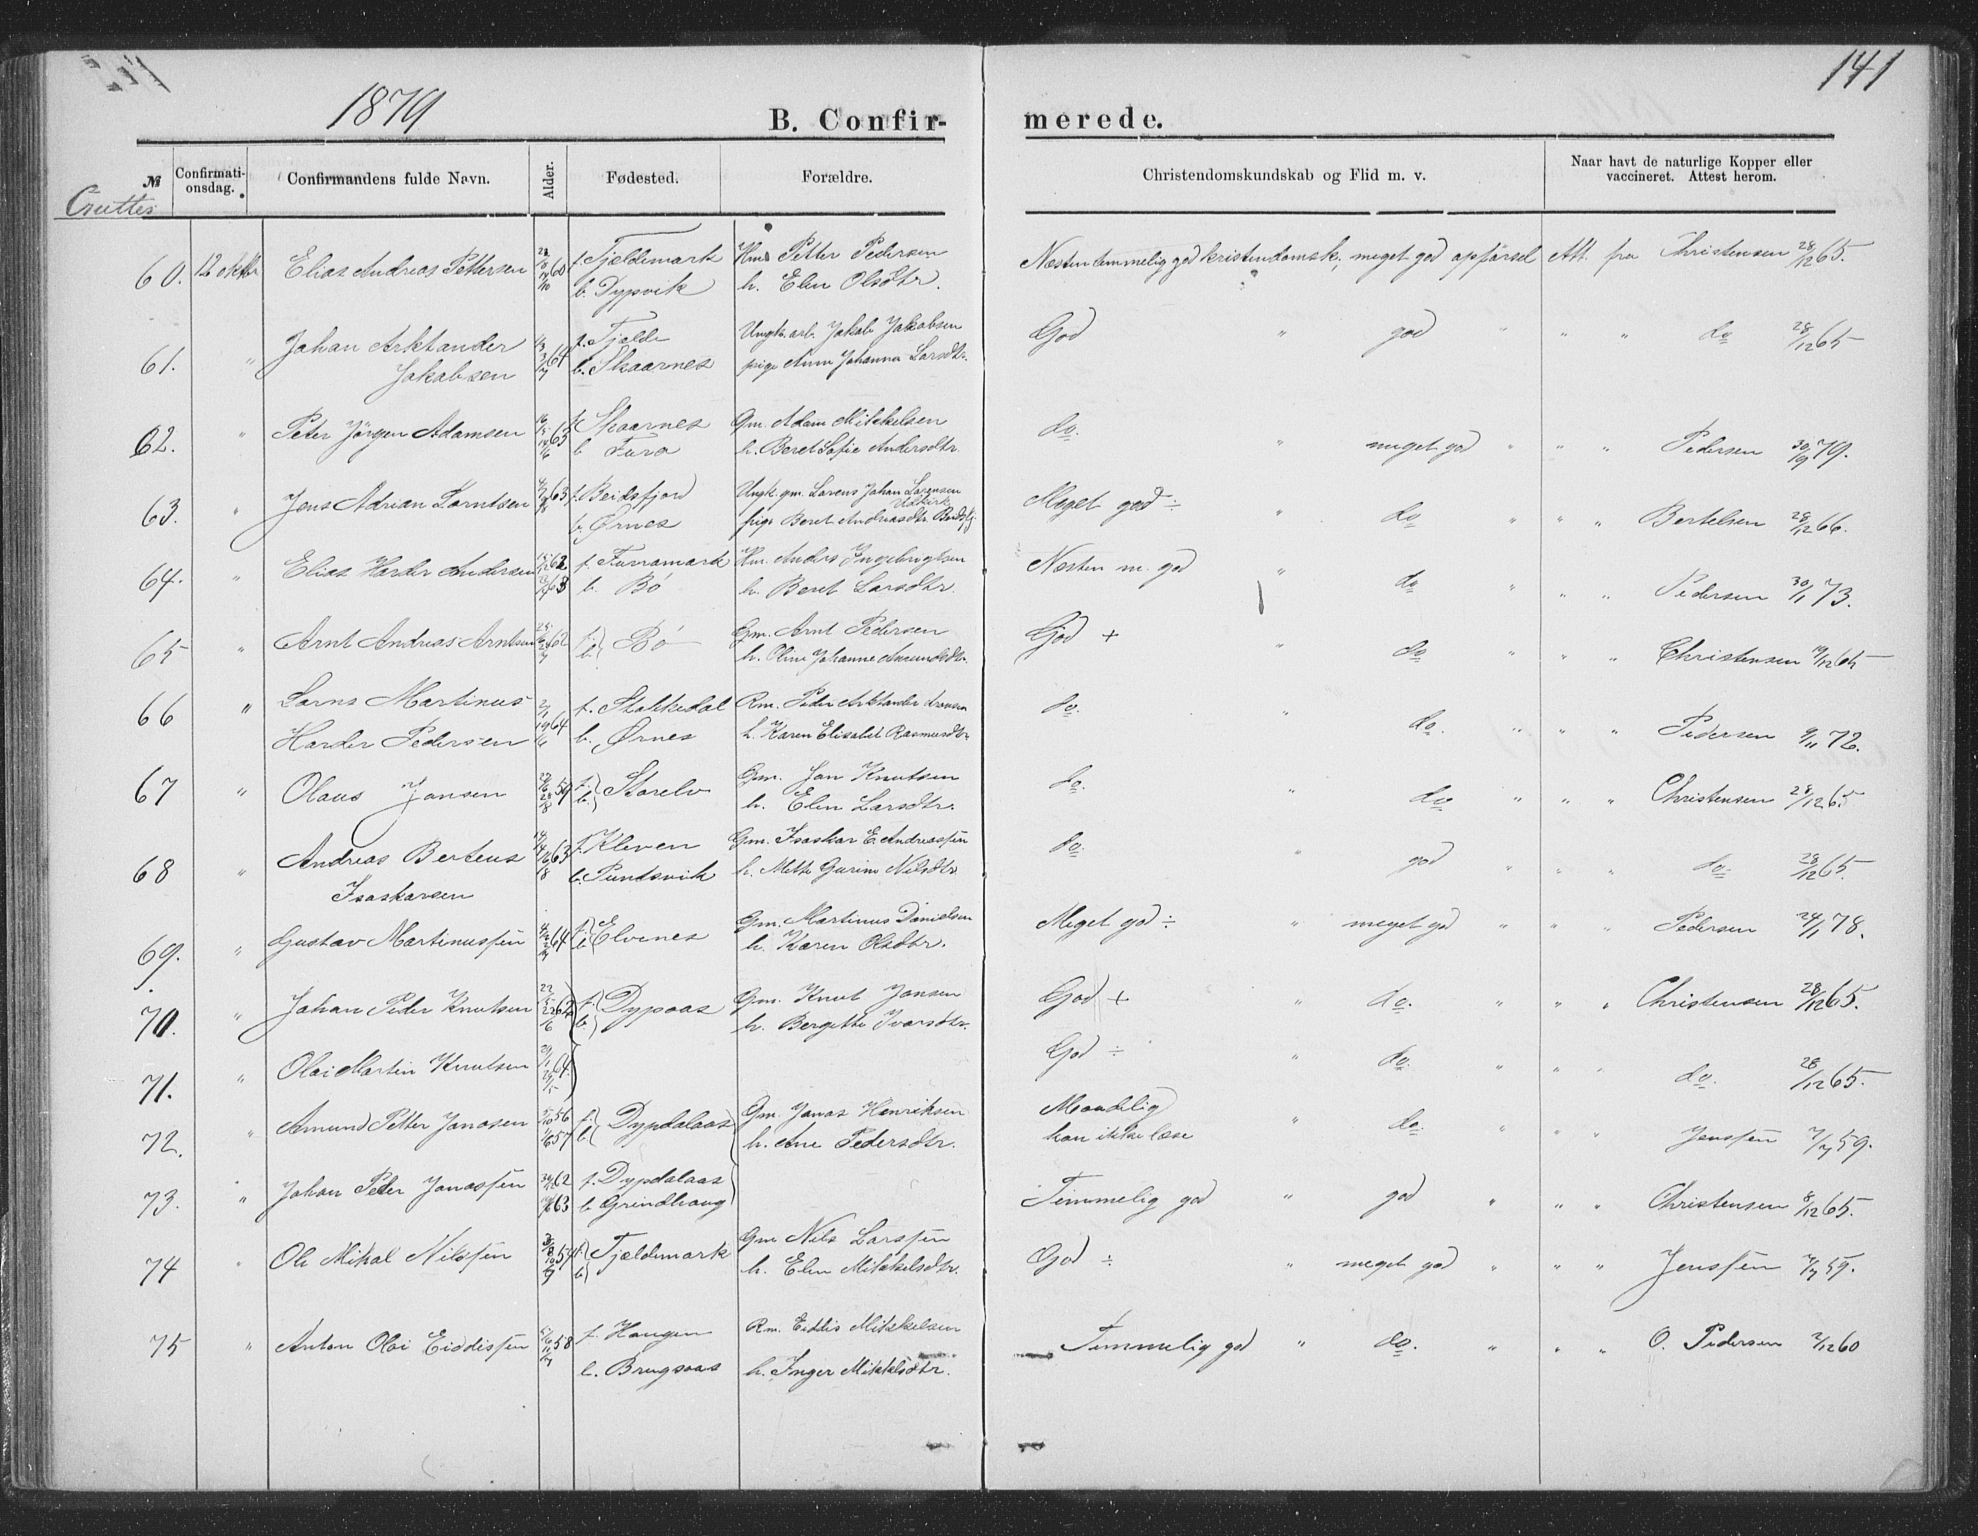 1879
141
B. Confirmerede.
№ Confirmationsdag. Confirmandens fulde Navn. Alder. Fødested. Forældre. Christendomskundskab og Flid m. v. Naar havt de naturlige Kopper eller vaccineret. Attest herom.
Gutter
60. 12 oktbr Elias Andreas Pettersen f. Fjeldemark Petter Pedersen Næsten temmelig god kristendomsk; meget god opførsel Att. fra Christensen 28/12 65.
b. Dypvik h. Elen Olsdtr.
61. " Johan Arktander 64 f. Fjelde Ungk. arb. Jakob Jakobsen God " god " " " do 28/12 65
Jakobsen b. Skaarnes pige Anne Johanna Larsdtr.
62. " Peter Jørgen Adamsen 63 f. Skaarnes Gm. Adam Mikkelsen do. " meget god " " " Pedersen 30/9 79.
b Furø h. Beret Sofie Andersdtr.
63. " Jens Adrian Larntsen 63 f. Beidsfjord Ungk. gm. Lorens Johan Lorensen Meget god ÷ " do " " " Bertelsen 28/12 66.
b. Ørnes pige Beret Andreasdtr.
64. " Elias Harder Andersen 62 f. Furramark Hm. Anders Ingebrigtsen Næsten m. god " do " " " Pedersen 30/1 73.
63 b. Bø h. Beret Larsdtr.
65 " Arnt Andreas Arntsen 62 f. b. Bø Gm. Arnt Pedersen God + " do " " " Christensen 19/12 65
h. Oline Johanne Amundsdtr.
66 " Larns Martinus 64 f. Stokkedal Rm. Peder Arktander do. " do. " " " Pedersen 9/11 72.
Harder Pedersen b. Ørnes h. Karen Elisabet Rasmusdtr
67 " Olaus Jansen 59 f. b. Storelv Gm. Jan Knutsen do. " do " " " Christensen 28/12 65
h. Elen Larsdtr.
68 " Andreas Berteus 63 f. Kleven Gm. Isaskar E. Andreassen do. " god " " " do. 28/12 65.
Isaskarsen b. Pundsvik h. Mette Gurine Nilsdtr
69. " Gustav Martinussen 64 f. b. Elvenes Gm. Martinus Danielsen Meget god ÷ " meget god " " " Pedersen 24/1 78.
h. Karen Olsdtr.
70. " Johan Peder Knutsen 62 f. b. Dypaas Gm. Knut Jonsen God + " do. " " " Christensen 28/12 65.
h. Bergitte Ivarsdtr.
71. " Olai Martin Knutsen 64 God ÷ " do. " " " do. 28/12 65.
72. " Amund Petter Jonasen 56 f. b. Dypdalaas Gm. Jonas Henriksen Maadelig " do. " " " Jenssen 7/7 59.
57 h. Ane Pedersdtr. kan ikke læse
73. " Johan Peter Jonassen 62 f. Dypdalaas Temmelig god " god " " " Christensen 8/12 65.
63 b. Grindhaug
74 " Ole Mikal Nilssen 59 f. b. Fjeldemark Gm Nils Larssen God ÷ " meget god " " " Jenssen 7/7 59.
h. Elen Mikkelsdtr.
75 " Anton Olai Eiddissen 58 f. Haugen Rm. Eiddis Mikkelsen Temmelig god " do. " " " O. Pedersen 2/12 60
b. Brugsaas h. Inger Mikkelsdtr.